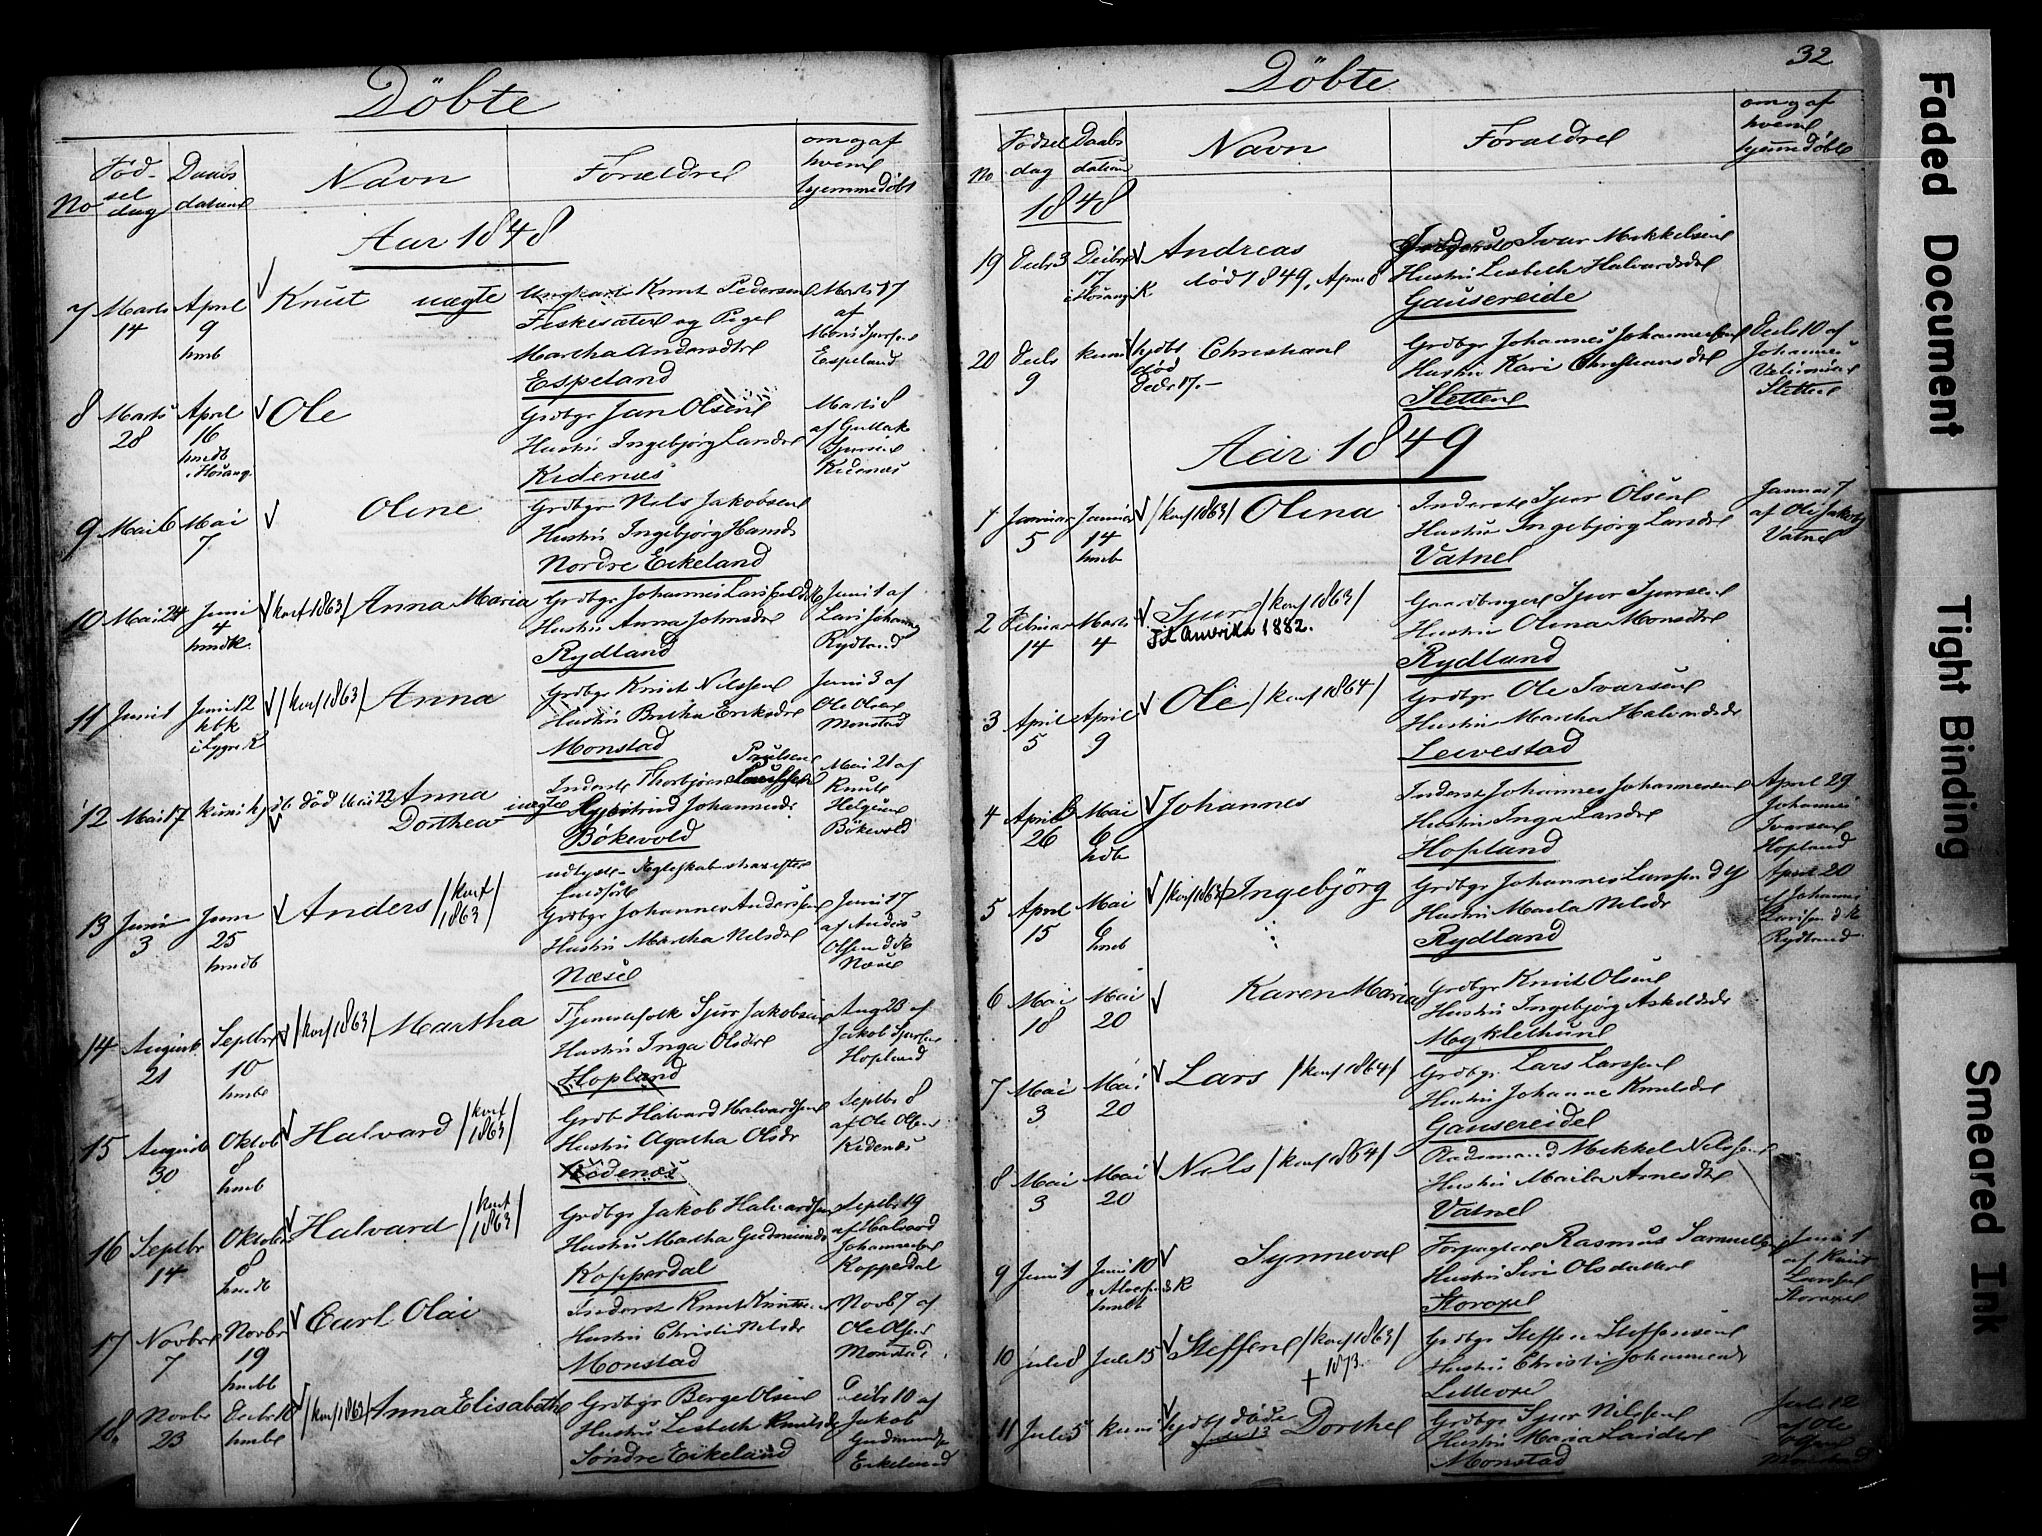 Döbte
No
Fød-
sel
dag
Daabs
datum
Navn
Forældre
om og af
hvem
hjemmedöbt
Aar 1848
7 Marts 14
April 9
hmb
Knut uægte
Ungkarl Knut Pedersen
Fiskesæter og Pige
Martha Andersdtr
Espeland
Marts 17
af
Espeland
8 Marts 28
April 16
hmdb
i Hosang.
Ole
Grdbgr Jan Olsen
Hustru Ingebjørg Larsdr
Kidenes
Marts 8
af Gullak
Sjursen
Kidenes
9 Mai 6
Mai 7
Oline
Grdbgr Nels Jakobsen
Hustru Ingebjørg Hansdr
Nordre Eikeland
10 Mai 24
Juni 4
hmdk
/konf 1863/ Anna Maria
Grdbgr Johannes Larssen
Hustru Anna Johnsdr
Rydland
Juni 1 af
Lars Johann
Rydland
11 Juni 1
Juni 12
kbk
i Lygre K
/konf 1863/ Anna
Grdbgr Knut Nilssen
Hustru Britha Eriksdr
Monstad
Juni 3 af
Ole Olsen
Monstad
12 Mai 17
kuni hjdb død Mai 22
Anna
Dorthea
uægte
Paulsen
Inderst Thorbjørn
Johannesdr
Bökevold
Mai 21 af
Knut
Helgesen
Bökevold
13 Juni 3
Juni 25
hmdb
Anders /konf
1863/
Grdbgr Johannes Anderssen
Hustru Martha Nelsdr
Næse
Juni 17
af Anders
Olssen d æ
Næse
14 August 21
Septbr 10
hmb
/konf 1863/ Martha
Tjenestefolk Sjur Jakobsen
Hustru Inga Olsdr
Hopland
Aug 23 af
Jakob Sjursen
Hopland
15 August 30
Oktob 8
hmb
Halvard /konf
1863/
Grdb Halvard Halvardsen
Hustru Agatha Olsdr
Kidenes
Septbr 8
af Ole Olsen
Kidenes
16 Septbr 14
Oktobr 8
hmdb
Halvard /konf
1863/
Grdbgr Jakob Halvardsen
Hustru Martha Gudmundsdr
Kopperdal
Septbr 19
af Halvard
Johannessen
Kopperdal
17 Novbr 7
Novbr 19
hmbb
Carl Olai
Inderst Knut Knutsen
Hustru Christi Nelsdr
Monstad
Novb 7 af
Ole Olsen
Monstad
18. Novbr 23
Decbr 10
hmb
/konf 1863/ Anna Elisabeth
Grdbgr Berge Olsen
Hustru Lisbeth Knutsdr
Söndre Eikeland
Decbr 10 af
Jakob
Gudmunds
Eikeland
32
Döbte
No
Fødsel
dag
Daabs
datum
Navn
Forældre
om og af
hvem
hjemmedöbt
1848
19 Decbr 3
Decbr 17
i Hosang K.
Andreas
död 1849, April 8
Ivar Mikkelsen
Hustru Lisbeth Halvardsdr
Gausereide
20 Decbr 9
kuni hjdbt
død
Decbr 17.-
Christiane
Grdbgr Johannes Johannessen
Hustru Kari Christiansdr
Sletten
Decbr 10 af
Johannes
Sletten
Aar 1849
1 Januar 5
Januar 14
hmb
/konf 1863/ Olina
Inderst Sjur Olsen
Hustru Ingebjörg Larsdr
Vatne
Januar 7
af Ole Jakobs
Vatne
2 Februar 14
Marts 4
Sjur /konf 1863/
Til Amerika 1882.
Gaardbruger Sjur Sjursen
Hustru Olina Monsdtr
Rydland
3 April 5
April 9
Ole /konf 1864/
Grdbgr Ole Ivarsen
Hustru Martha Halvardsdr
Leivestad
4 April 26
Mai 6
hdb
Johannes
Inderst Johannes Johannessen
Hustru Inga Larsdr
Hopland
April 29
Johannes
Ivarsen
Hopland
5 April 15
Mai 6
hmb
/konf 1863/ Ingebjörg
Grdbgr Johannes Larssen d Y
Hustru Marta Nelsdr
Rydland
April 20
af Johannes
Larssen d æ
Rydland
6 Mai 18
Mai 20
Karen Maria
Grdbgr Knut Olsen
Hustru Ingebjörg Askeldsdr
Myklethun
7 Mai 3
Mai 20
Lars /konf 1864/
Grdbgr Lars Larssen
Hustru Johanne Knutsdr
Gausereidet
8 Mai 3
Mai 20
Nils /konf 1864/
Pladsmand Mikkel Nilssen
Hustru Marta Arnesdtr
Vatne
9 Juni 1
Juni 10
hmdt
Synneva
Forpagter Rasmus Samuelsen
Hustru Siri Olsdatter
Storoxel
Juni 1
af Knut
Larssen
Storoxel
10 Juli 8
Juli 15
Steffen /konf 1863/
+ 1873.
Grdbgr Steffen Steffensen
Hustru Christi Johannesdr
Lilleoxel
11 Juli 5
kuni hjdbt døde
Juli 13
Dorthe
Grdbgr Sjur Nilssen
Hustru Maria Larsdtr
Monstad
Juli 12
af Ole
Monstad
Faded Document
Tight Binding
Smeared Ink